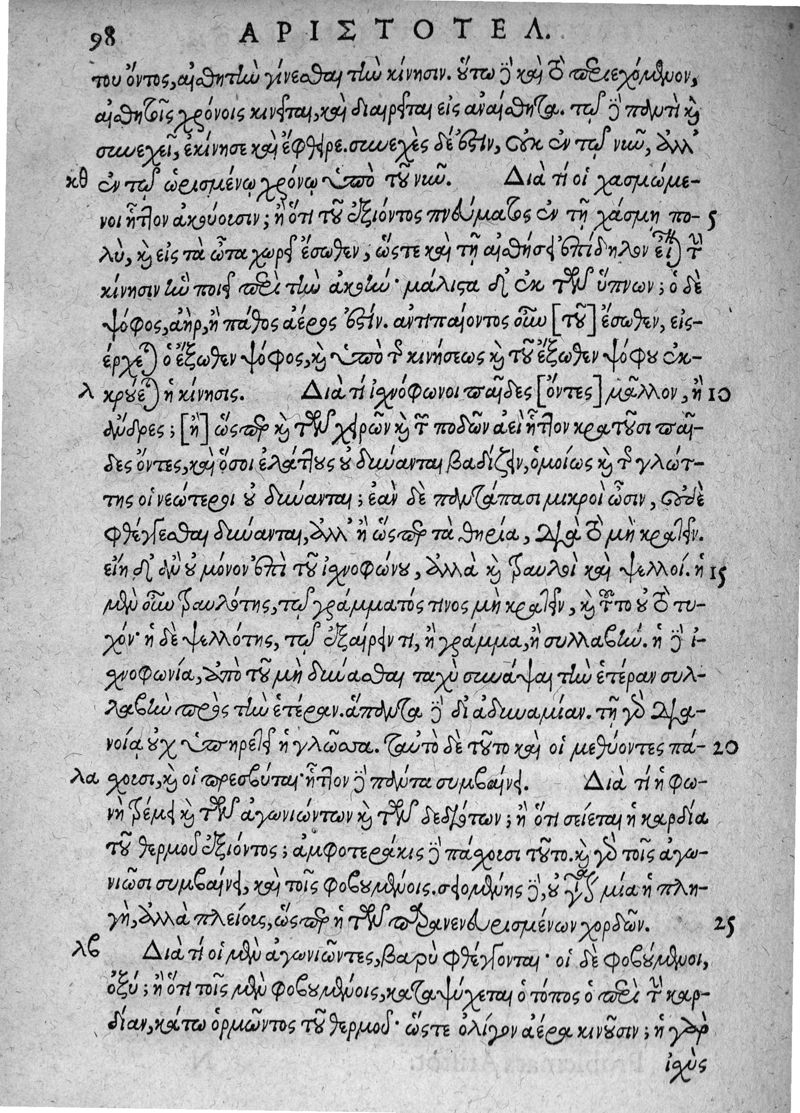 98 ΑΡΙΣΤΟΤΕΛ.
του ὄντος, αἰσθητὴν γίνεσθαι τὴν κίνησιν. οὕτω δὲ καὶ τὸ περιεχόμενον,
αἰσθητοῖς χρόνοις κινεῖται, καὶ διαιρεῖται εἰς ἀναίσθητα. τῷ δὲ παντὶ καὶ
συνεχεῖ, ἐκίνησε καὶ ἔφθειρε. συνεχὲς δέ ἐστιν, οὐκ ἐν τῷ νῦν, ἀλλ'
κθ ἐν τῷ ὡρισμένῳ χρόνῳ ὑπὸ τοῦ νῦν. Διὰ τί οἱ χασμώμε-
νοι ἧττον ἀκούουσιν; ἢ ὅτι τοῦ ἐξιόντος πνεύματος ἐν τῇ χάσμῃ πο- 5
λὺ, καὶ εἰς τὰ ὦτα χωρεῖ ἔσωθεν, ὥστε καὶ τῇ αἰσθήσει ἐπίδηλον εἶναι τὴν
κίνησιν ἣν ποιεῖ περὶ τὴν ἀκοὴν· μάλιστα δ' ἐκ τῶν ὕπνων; ὁ δὲ
ψόφος, ἀὴρ, ἢ πάθος ἀέρος ἐστίν. ἀντιπαίοντος οὖν [τοῦ] ἔσωθεν, εἰσ-
έρχεται ὁ ἔξωθεν ψόφος, καὶ ὑπὸ τῆς κινήσεως καὶ τοῦ ἔξωθεν ψόφου ἐκ-
λ κρούεται ἡ κίνησις. Διὰ τί ἰσχνόφωνοι παῖδες [ὄντες] μᾶλλον, ἢ 10
ἄνδρες; [ἢ] ὥσπερ καὶ τῶν χειρῶν καὶ τῶν ποδῶν ἀεὶ ἧττον κρατοῦσι παῖ-
δες ὄντες, καὶ ὅσοι ἐλάττους οὐ δύνανται βαδίζειν, ὁμοίως καὶ τῆς γλώτ-
της οἱ νεώτεροι οὐ δύνανται; ἐὰν δὲ παντάπασι μικροὶ ὦσιν, οὐδὲ
φθέγγεσθαι δύνανται, ἀλλ' ἢ ὥσπερ τὰ θηρία, διὰ τὸ μὴ κρατεῖν.
εἴη δ' ἂν οὐ μόνον ἐπὶ τοῦ ἰσχνοφώνου, ἀλλὰ καὶ τραυλοὶ καὶ ψελλοί. ἡ 15
μὲν οὖν τραυλότης, τῷ γράμματός τινος μὴ κρατεῖν, καὶ τοῦτο οὐ τὸ τυ-
χόν· ἡ δὲ ψελλότης, τῷ ἐξαίρειν τι, ἢ γράμμα, ἢ συλλαβήν. ἡ δὲ ἰ-
σχνοφωνία, ἀπὸ τοῦ μὴ δύνασθαι ταχὺ συνάψαι τὴν ἑτέραν συλ-
λαβὴν πρὸς τὴν ἑτέραν. ἅπαντα δὲ δι' ἀδυναμίαν. τῇ γὰρ δια-
νοίᾳ οὐχ ὑπηρετεῖ ἡ γλῶσσα. ταὐτὸ δὲ τοῦτο καὶ οἱ μεθύοντες πά- 20
λα σχουσι, καὶ οἱ πρεσβύται· ἧττον δὲ πάντα συμβαίνει. Διὰ τί ἡ φω-
νὴ τρέμει καὶ τῶν ἀγωνιώντων καὶ τῶν δεδιότων; ἢ ὅτι σείεται ἡ καρδία
τοῦ θερμοῦ ἐξιόντος; ἀμφοτεράκις δὲ πάσχουσι τοῦτο. καὶ γὰρ τοῖς ἀγω-
νιῶσι συμβαίνει, καὶ τοῖς φοβουμένοις. σειομένης δὲ, οὐ γίνεται μία ἡ πλη-
γὴ, ἀλλὰ πλείους, ὥσπερ ἡ τῶν παρανενευρισμένων χορδῶν. 25
λβ Διὰ τί οἱ μὲν ἀγωνιῶντες, βαρὺ φθέγγονται· οἱ δὲ φοβούμενοι,
ὀξύ; ἢ ὅτι τοῖς μὲν φοβουμένοις, καταψύχεται ὁ τόπος ὁ περὶ τὴν καρ-
δίαν, κάτω ὁρμῶντος τοῦ θερμοῦ· ὥστε ὀλίγον ἀέρα κινοῦσιν; ἡ γὰρ
ἰσχὺς